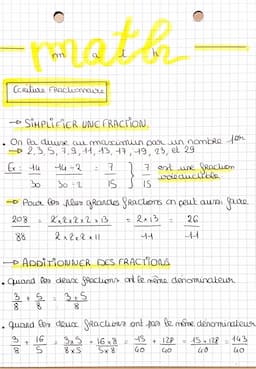 math
m a t h
Ecriture Fractionnaire
→ SIMPLIFIER UNE FRACTION
• On la divise au maximum par un nombre 1er
→ 2, 3, 5, 7, 9, 11, 13, 17, 19, 23, et 29
Ex : 14/30 = 14÷2/30÷2 = 7/15 } 7/15 est une fraction irréductible
→ Pour les plus grandes fractions on peut aussi faire
208/88 = 2×2×2×2×13/2×2×2×11 = 2×13/11 = 26/11
→ ADDITIONNER DES FRACTIONS
• Quand les deux fractions ont le même dénominateur
3/8 + 5/8 = 3+5/8
• Quand les deux fractions ont pas le même dénominateur
3/8 + 16/5 = 3×5/8×5 + 16×8/5×8 = 15/40 + 128/40 = 15+128/40 = 143/40